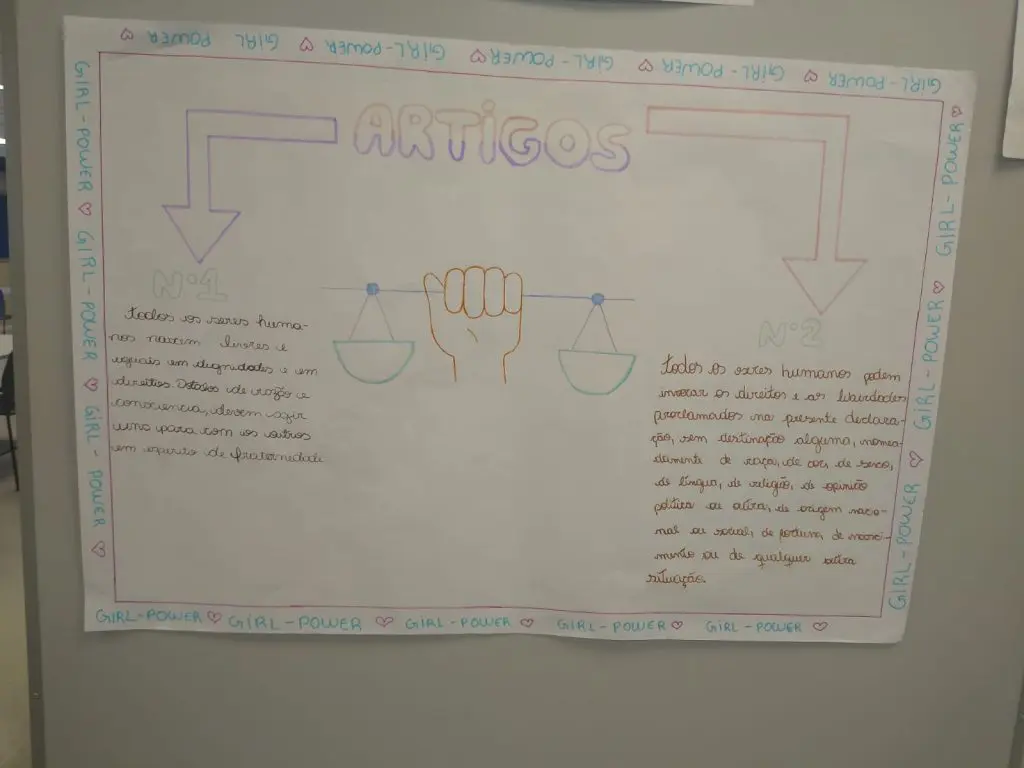 GIRL-POWER ♡ GIRL-POWER ♡ GIRL-POWER ♡ GIRL-POWER ♡ GIRL POWER ♡
GIRL-POWER ♡ GIRL-POWER ♡ GIRL-POWER ♡
ARTIGOS
Nº1
todos os seres huma-
nos nascem livres e
iguais em dignidades e em
direitos. Dotados de razão e
consciencia, devem agir
uns para com os outros
em espirito de fraternidade
Nº2
todos os seres humanos podem
invocar os direitos e as liberdades
proclamados na presente declara-
ção, sem destinação alguma, nomea-
damente de raça, de cor, de sexo,
de língua, de religião, de opinião
política ou outra, de origem nacio-
nal ou social, de fortuna, de nasci-
mento ou de qualquer outra
situação.
GIRL-POWER ♡ GIRL-POWER ♡ GIRL-POWER ♡
GIRL-POWER ♡ GIRL-POWER ♡ GIRL-POWER ♡ GIRL-POWER ♡ GIRL-POWER ♡